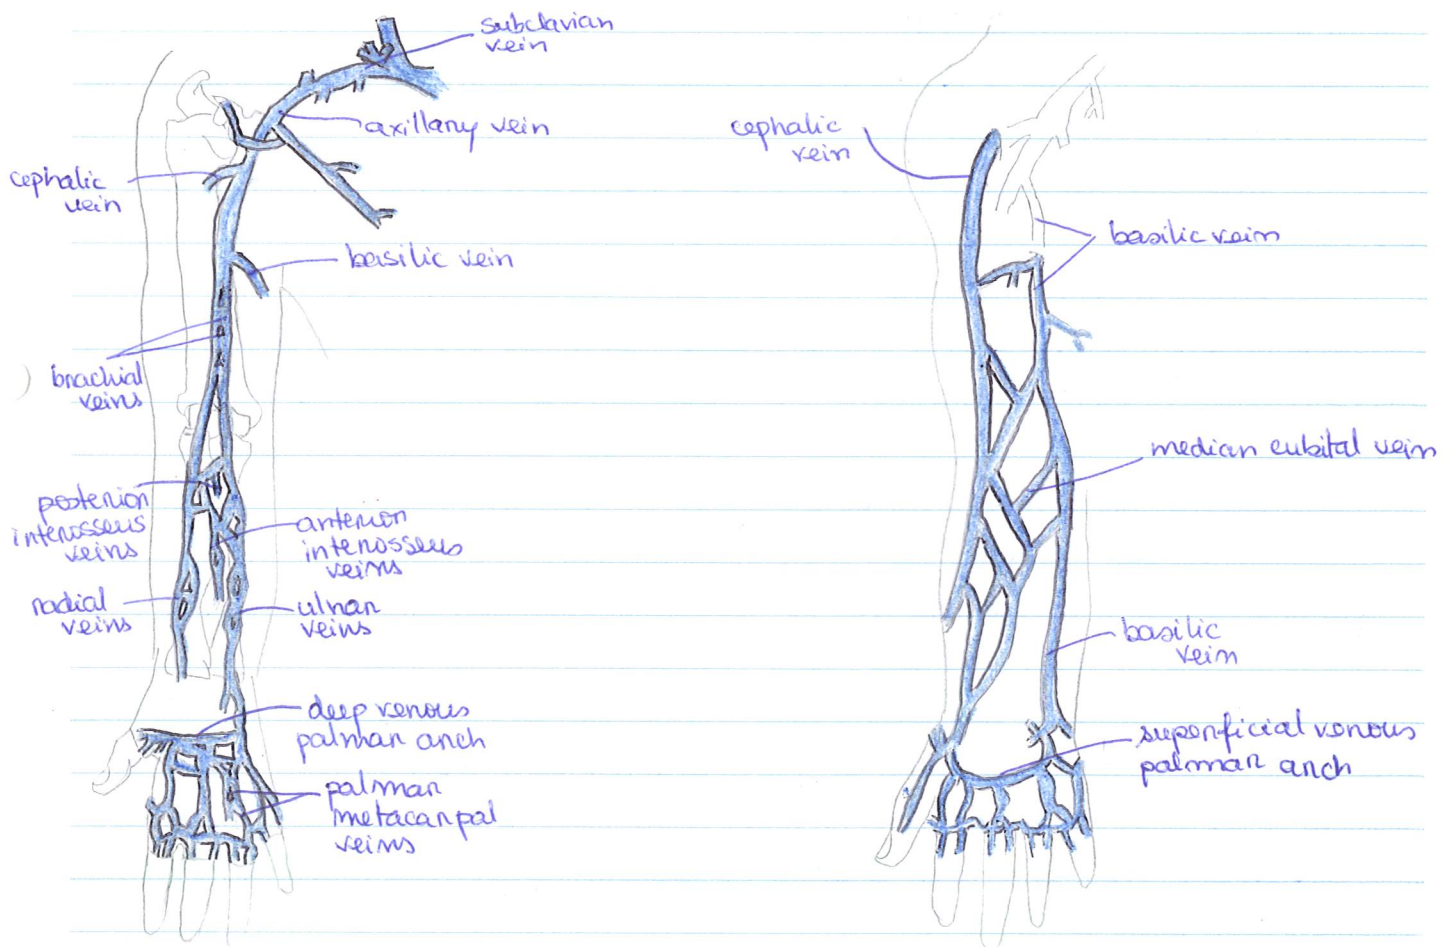 subclavian
vein
axillary vein
cephalic
vein
basilic vein
brachial
veins
posterior
interosseus
veins
anterior
interosseus
veins
radial
veins
ulnar
veins
deep venous
palmar arch
palmar
metacarpal
veins
cephalic
vein
basilic vein
median cubital vein
basilic
vein
superficial venous
palmar arch